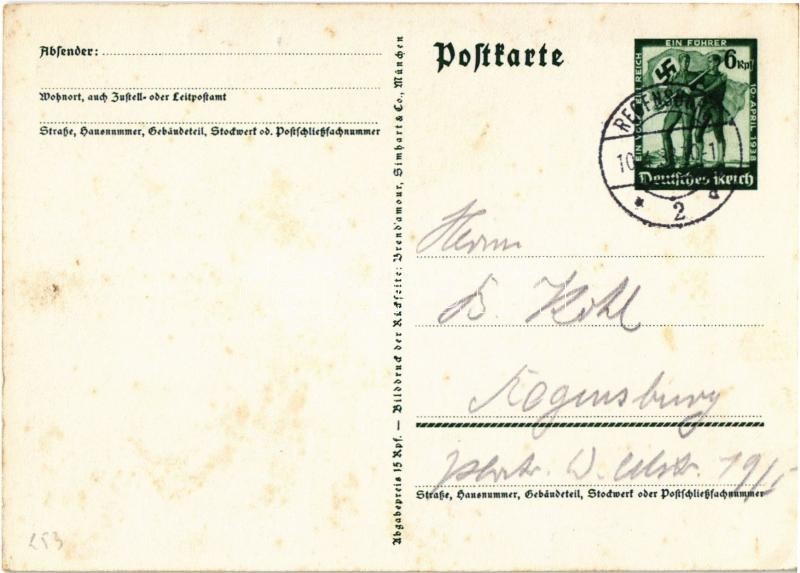 Absender:
Wohnort, auch Zustell- oder Leitpostamt
Straße, Hausnummer, Gebäudeteil, Stockwerk od. Postschließfachnummer
253
Abgabepreis 15 Rpf. — Bilddruck der Rückseite: Brend'amour, Simhart & Co., München
Postkarte
EIN VOLK EIN REICH
EIN FÜHRER
10. APRIL 1938
6 Rpf
Deutsches Reich
REGENSBURG
10
2
Herrn
B. Kohl
Regensburg
19/
Straße, Hausnummer, Gebäudeteil, Stockwerk oder Postschließfachnummer